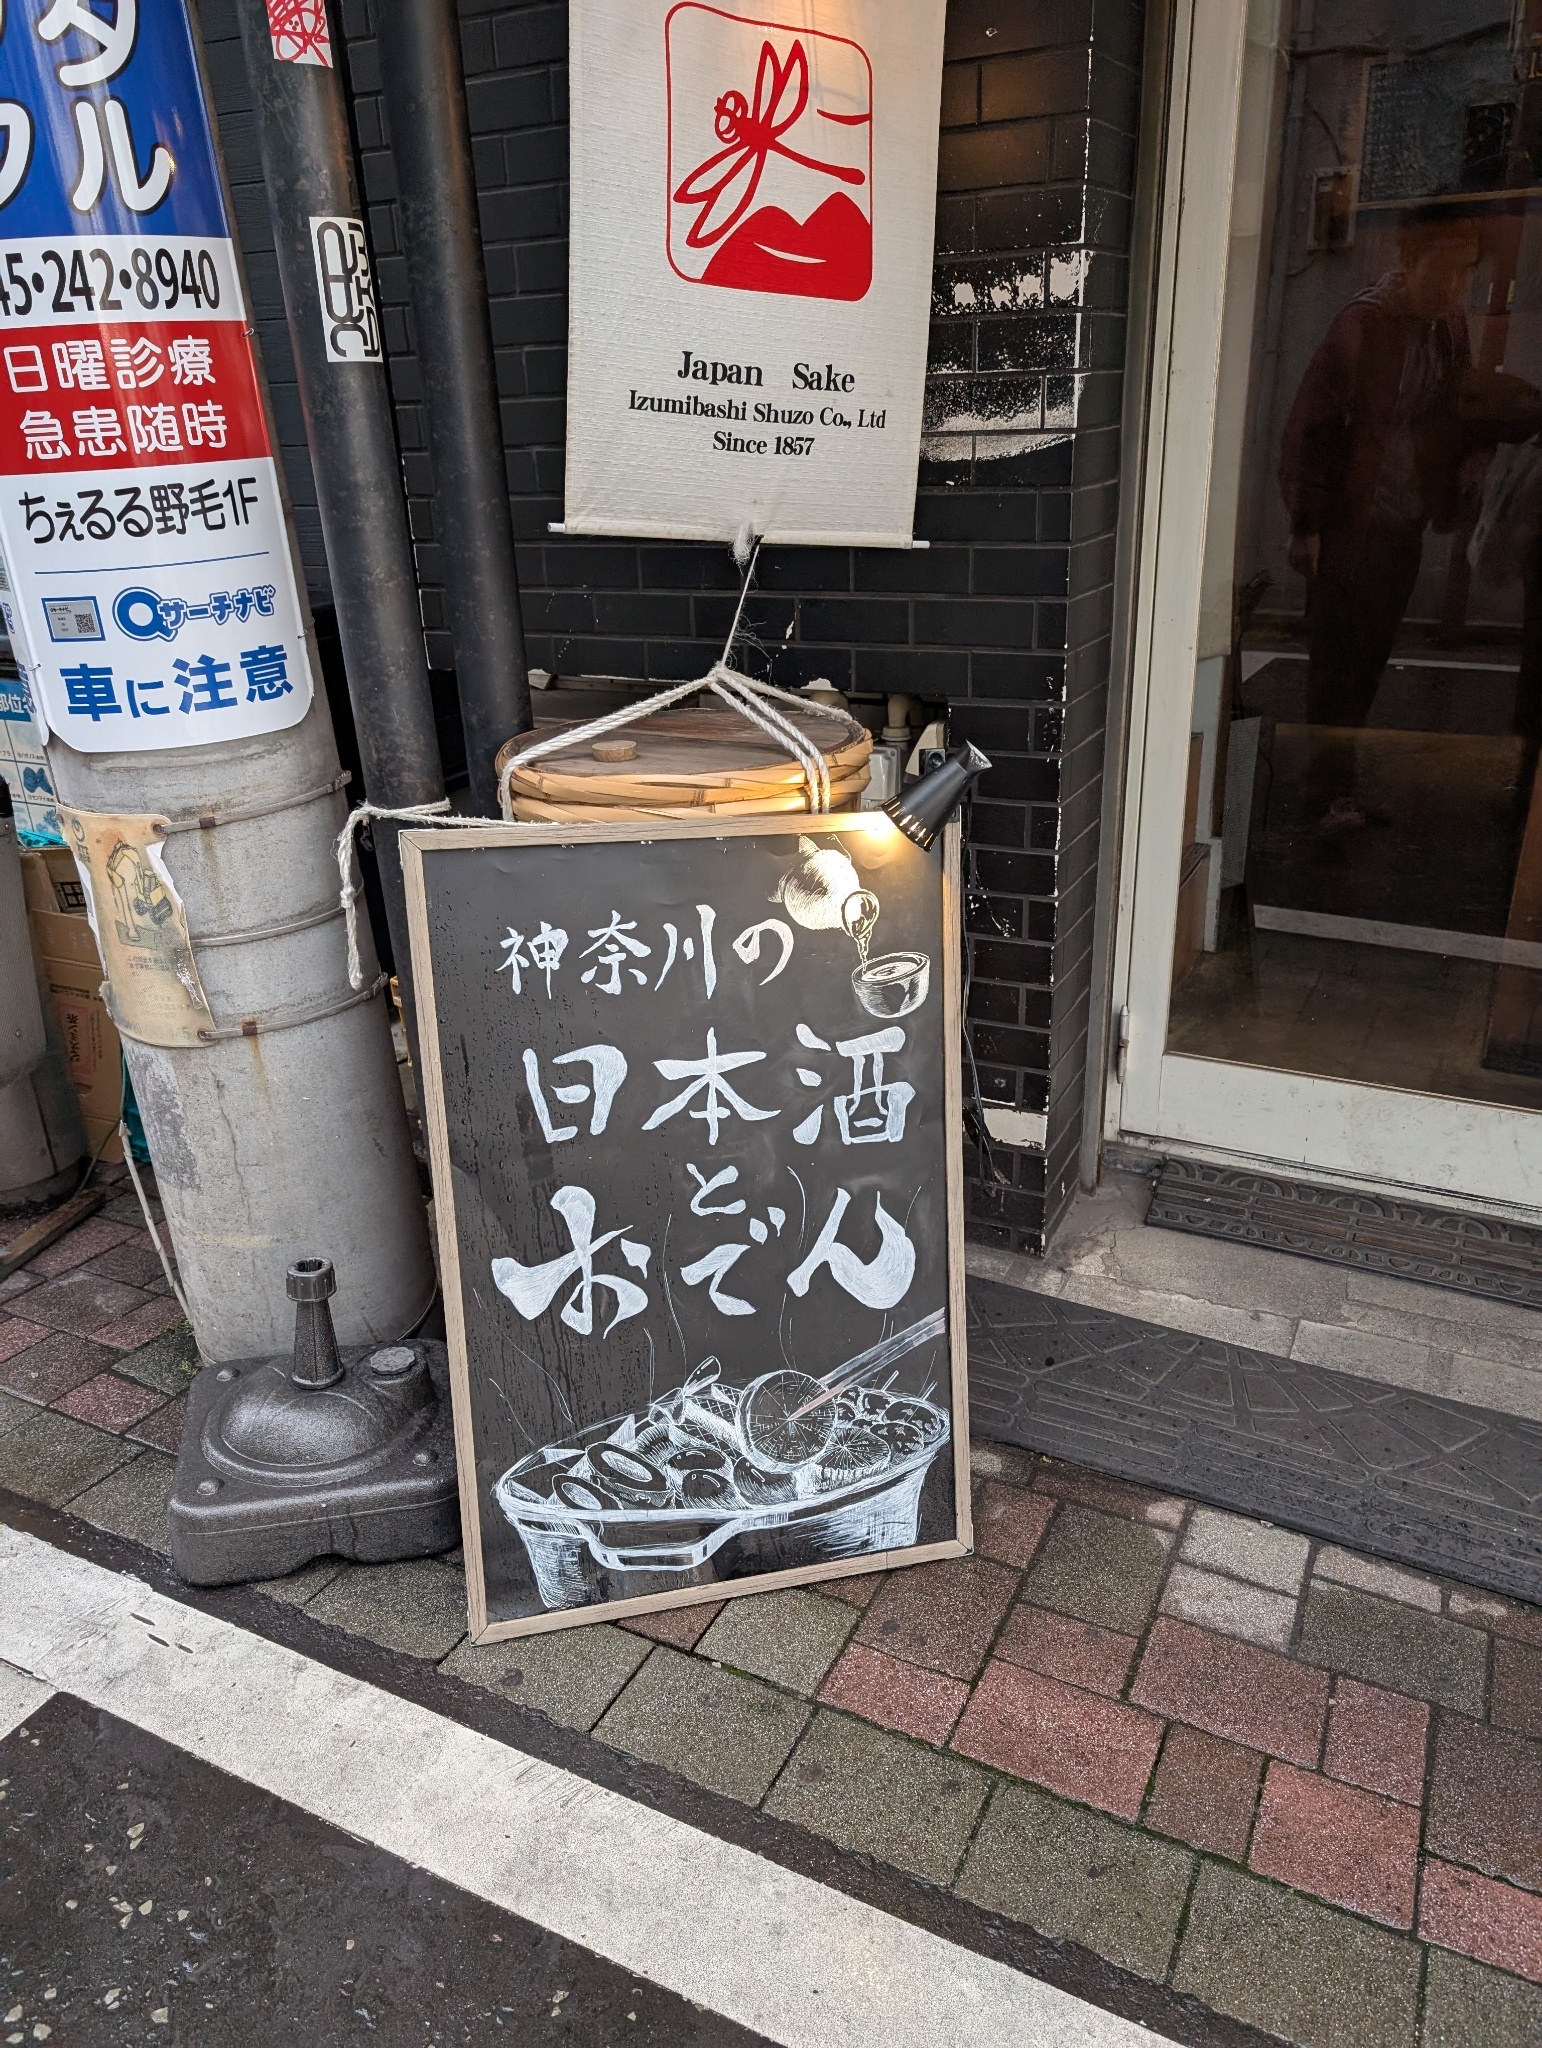 タル
45・242・8940
日曜診療
急患随時
ちぇるる野毛1F
サーチナビ
車に注意
Japan Sake
Izumibashi Shuzo Co., Ltd
Since 1857
神奈川の
日本酒
と
おでん